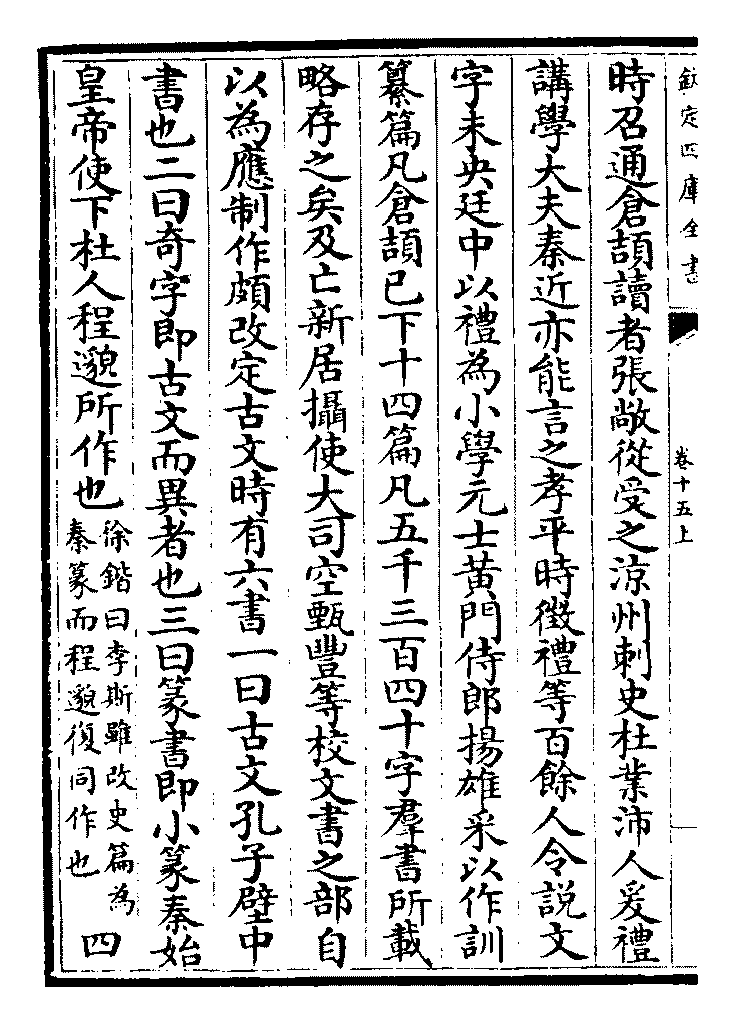 欽定四庫全書
卷十五上
時召通倉頡讀者張敞從受之涼州刺史杜業沛人爰禮
講學大夫秦近亦能言之孝平時徵禮等百餘人令說文
字未央廷中以禮為小學元士黄門侍郎揚雄采以作訓
纂篇凡倉頡已下十四篇凡五千三百四十字羣書所載
略存之矣及亡新居攝使大司空甄豐等校文書之部自
以為應制作頗改定古文時有六書一曰古文孔子壁中
書也二曰奇字即古文而異者也三曰篆書即小篆秦始
皇帝使下杜人程邈所作也
徐鍇曰李斯雖改史篇為
秦篆而程邈復同作也
四